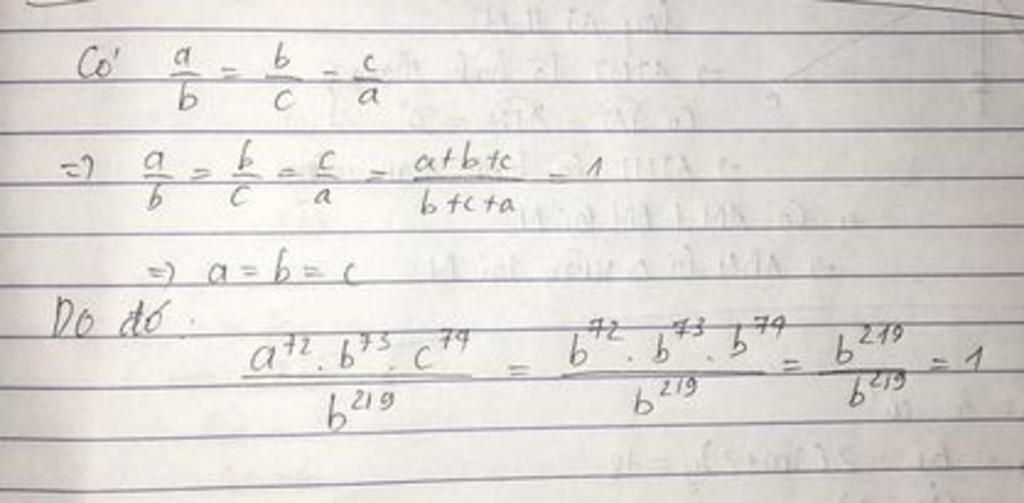 Có a/b = b/c = c/a
=> a/b = b/c = c/a = (a+b+c)/(b+c+a) = 1
=> a = b = c
Do đó.
(a^72 . b^73 . c^74)/b^219 = (b^72 . b^73 . b^74)/b^219 = b^219/b^219 = 1